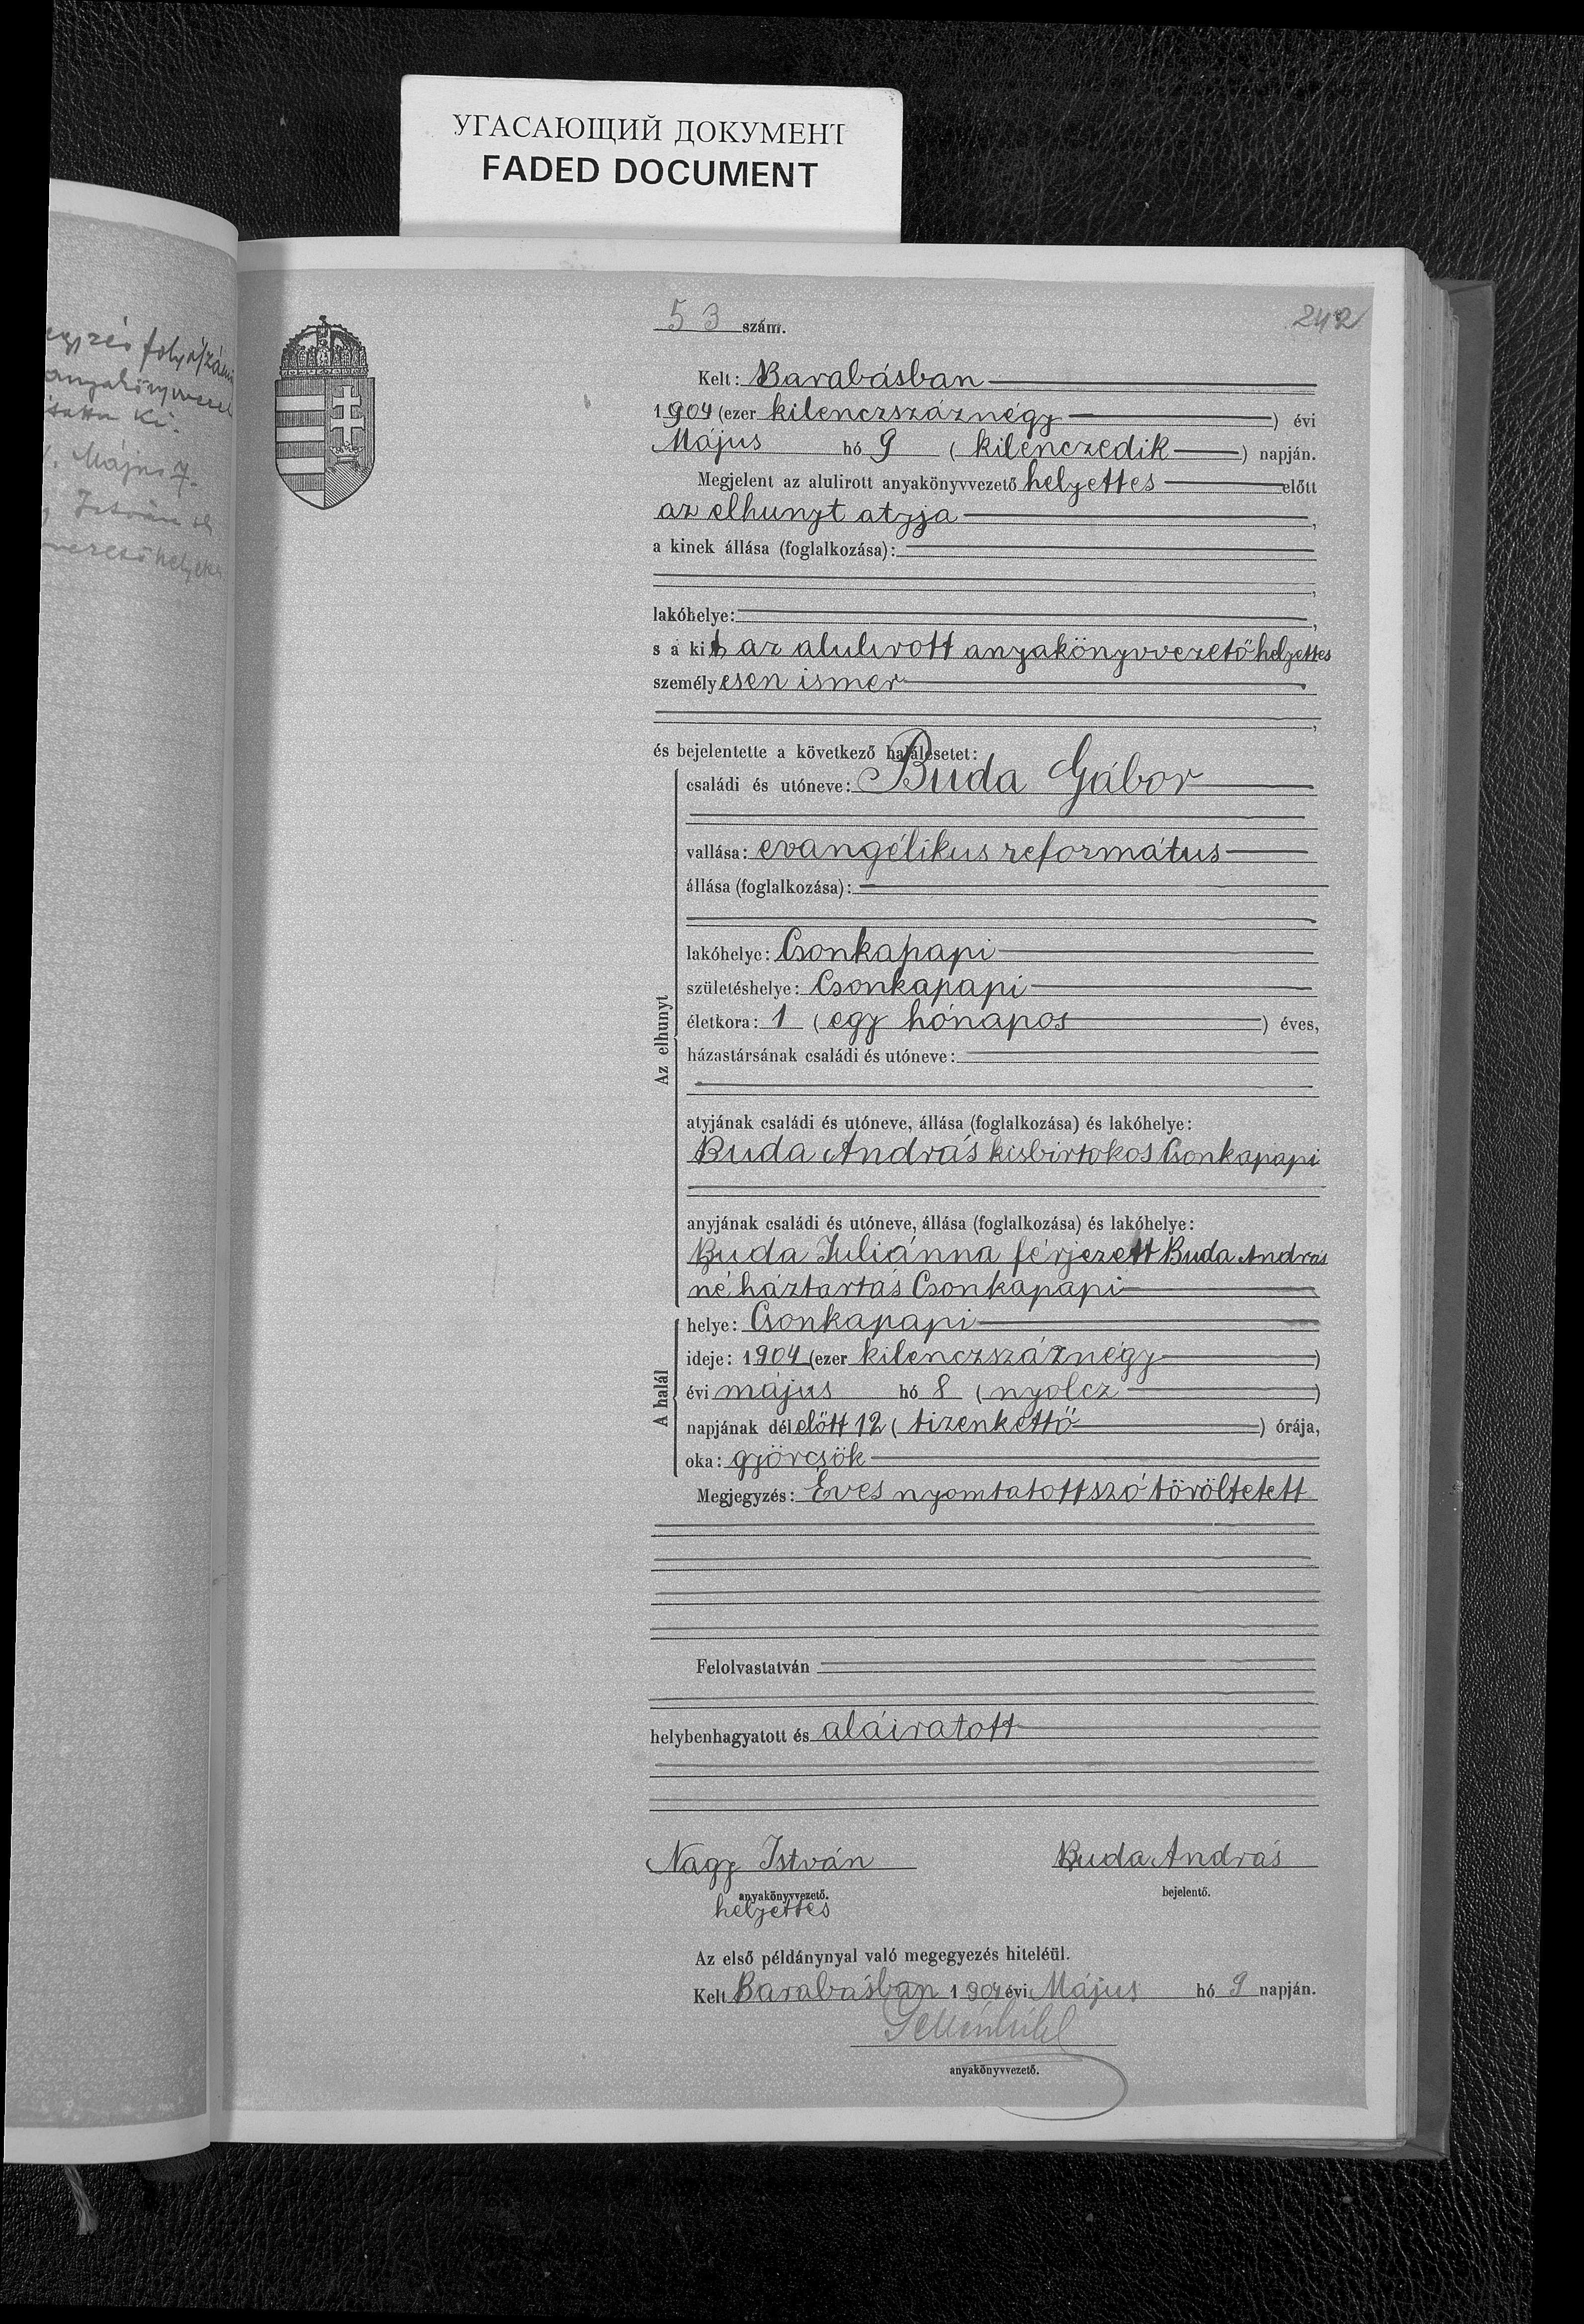 УГАСАЮЩИЙ ДОКУМЕНТ
FADED DOCUMENT
Május 7.
István
53 szám.
242
Kelt: Barabásban
1904 (ezer kilenczszáznégy) évi
Május hó 9 (kilenczedik) napján.
Megjelent az alulirott anyakönyvvezető helyettes előtt
az elhunyt atyja,
a kinek állása (foglalkozása):
lakóhelye:
s a kit az alulirott anyakönyvvezetőhelyettes
személyesen ismer
és bejelentette a következő halálesetet:
családi és utóneve: Buda Gábor
vallása: evangélikus református
állása (foglalkozása):
lakóhelye: Csonkapapi
születéshelye: Csonkapapi
életkora: 1 (egy hónapos) éves,
Az elhunyt
házastársának családi és utóneve:
atyjának családi és utóneve, állása (foglalkozása) és lakóhelye:
Buda András kisbirtokos Csonkapapi
anyjának családi és utóneve, állása (foglalkozása) és lakóhelye:
Buda Juliánna férjezett Buda András
né háztartás Csonkapapi
helye: Csonkapapi
ideje: 1904 (ezer kilenczszáznégy)
A halál
évi május hó 8 (nyolcz)
napjának délelőtt 12 (tizenkettő) órája,
oka: görcsök
Megjegyzés: Éves nyomtatott szó töröltetett
Felolvastatván
helybenhagyatott és aláiratott
Nagy István
Buda András
anyakönyvvezető.
bejelentő.
helyettes
Az első példánynyal való megegyezés hiteléül.
Kelt Barabásban 1904 évi Május hó 9 napján.
anyakönyvvezető.